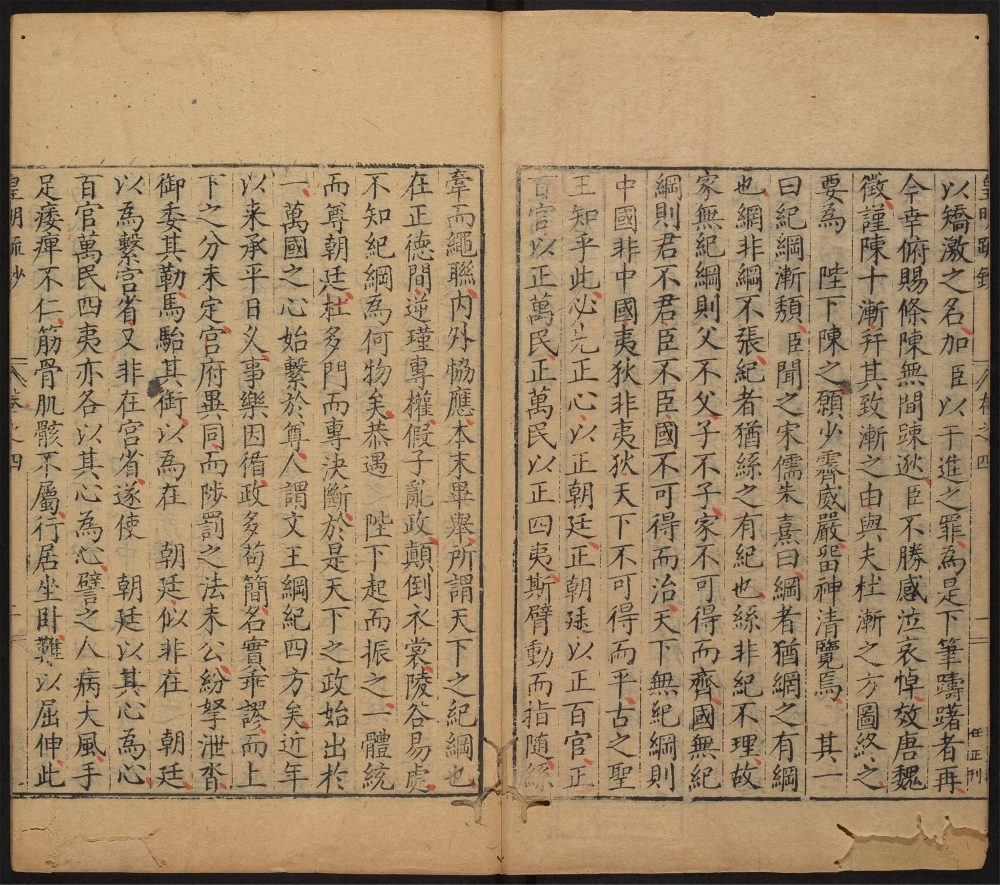 皇明疏鈔
卷之四
一
任正刊
以矯激之名加臣以干進之罪為足下筆躊躇者再
今幸俯賜條陳無間踈逖臣不勝感泣哀悼效唐魏
徵謹陳十漸并其致漸之由與夫杜漸之方圖終之
要為 陛下陳之願少霽威嚴畱神清覽焉 其一
曰紀綱漸頹臣聞之宋儒朱熹曰綱者猶網之有綱
也綱非綱不張紀者猶絲之有紀也絲非紀不理故
家無紀綱則父不父子不子家不可得而齊國無紀
綱則君不君臣不臣國不可得而治天下無紀綱則
中國非中國夷狄非夷狄天下不可得而平古之聖
王知乎此必先正心以正朝廷正朝廷以正百官正
百官以正萬民正萬民以正四夷斯臂動而指随綵
牽而繩聯內外恊應本末畢舉所謂天下之紀綱也
在正徳間逆瑾專權假子亂政顛倒衣裳陵谷易處
不知紀綱為何物矣恭遇 陛下起而振之一體統
而尊朝廷杜多門而專決斷於是天下之政始出於
一萬國之心始繫於尊人謂文王綱紀四方矣近年
以来承平日乂事樂因循政多苟簡名實乖謬而上
下之分未定宮府異同而陟罰之法未公紛拏泄沓
御委其勒馬駘其銜以為在 朝廷似非在 朝廷
以為繫宮省又非在宮省遂使 朝廷以其心為心
百官萬民四夷亦各以其心為心譬之人病大風手
足痿痺不仁筋骨肌骸不屬行居坐卧難以屈伸此
皇明疏鈔
卷之四
二